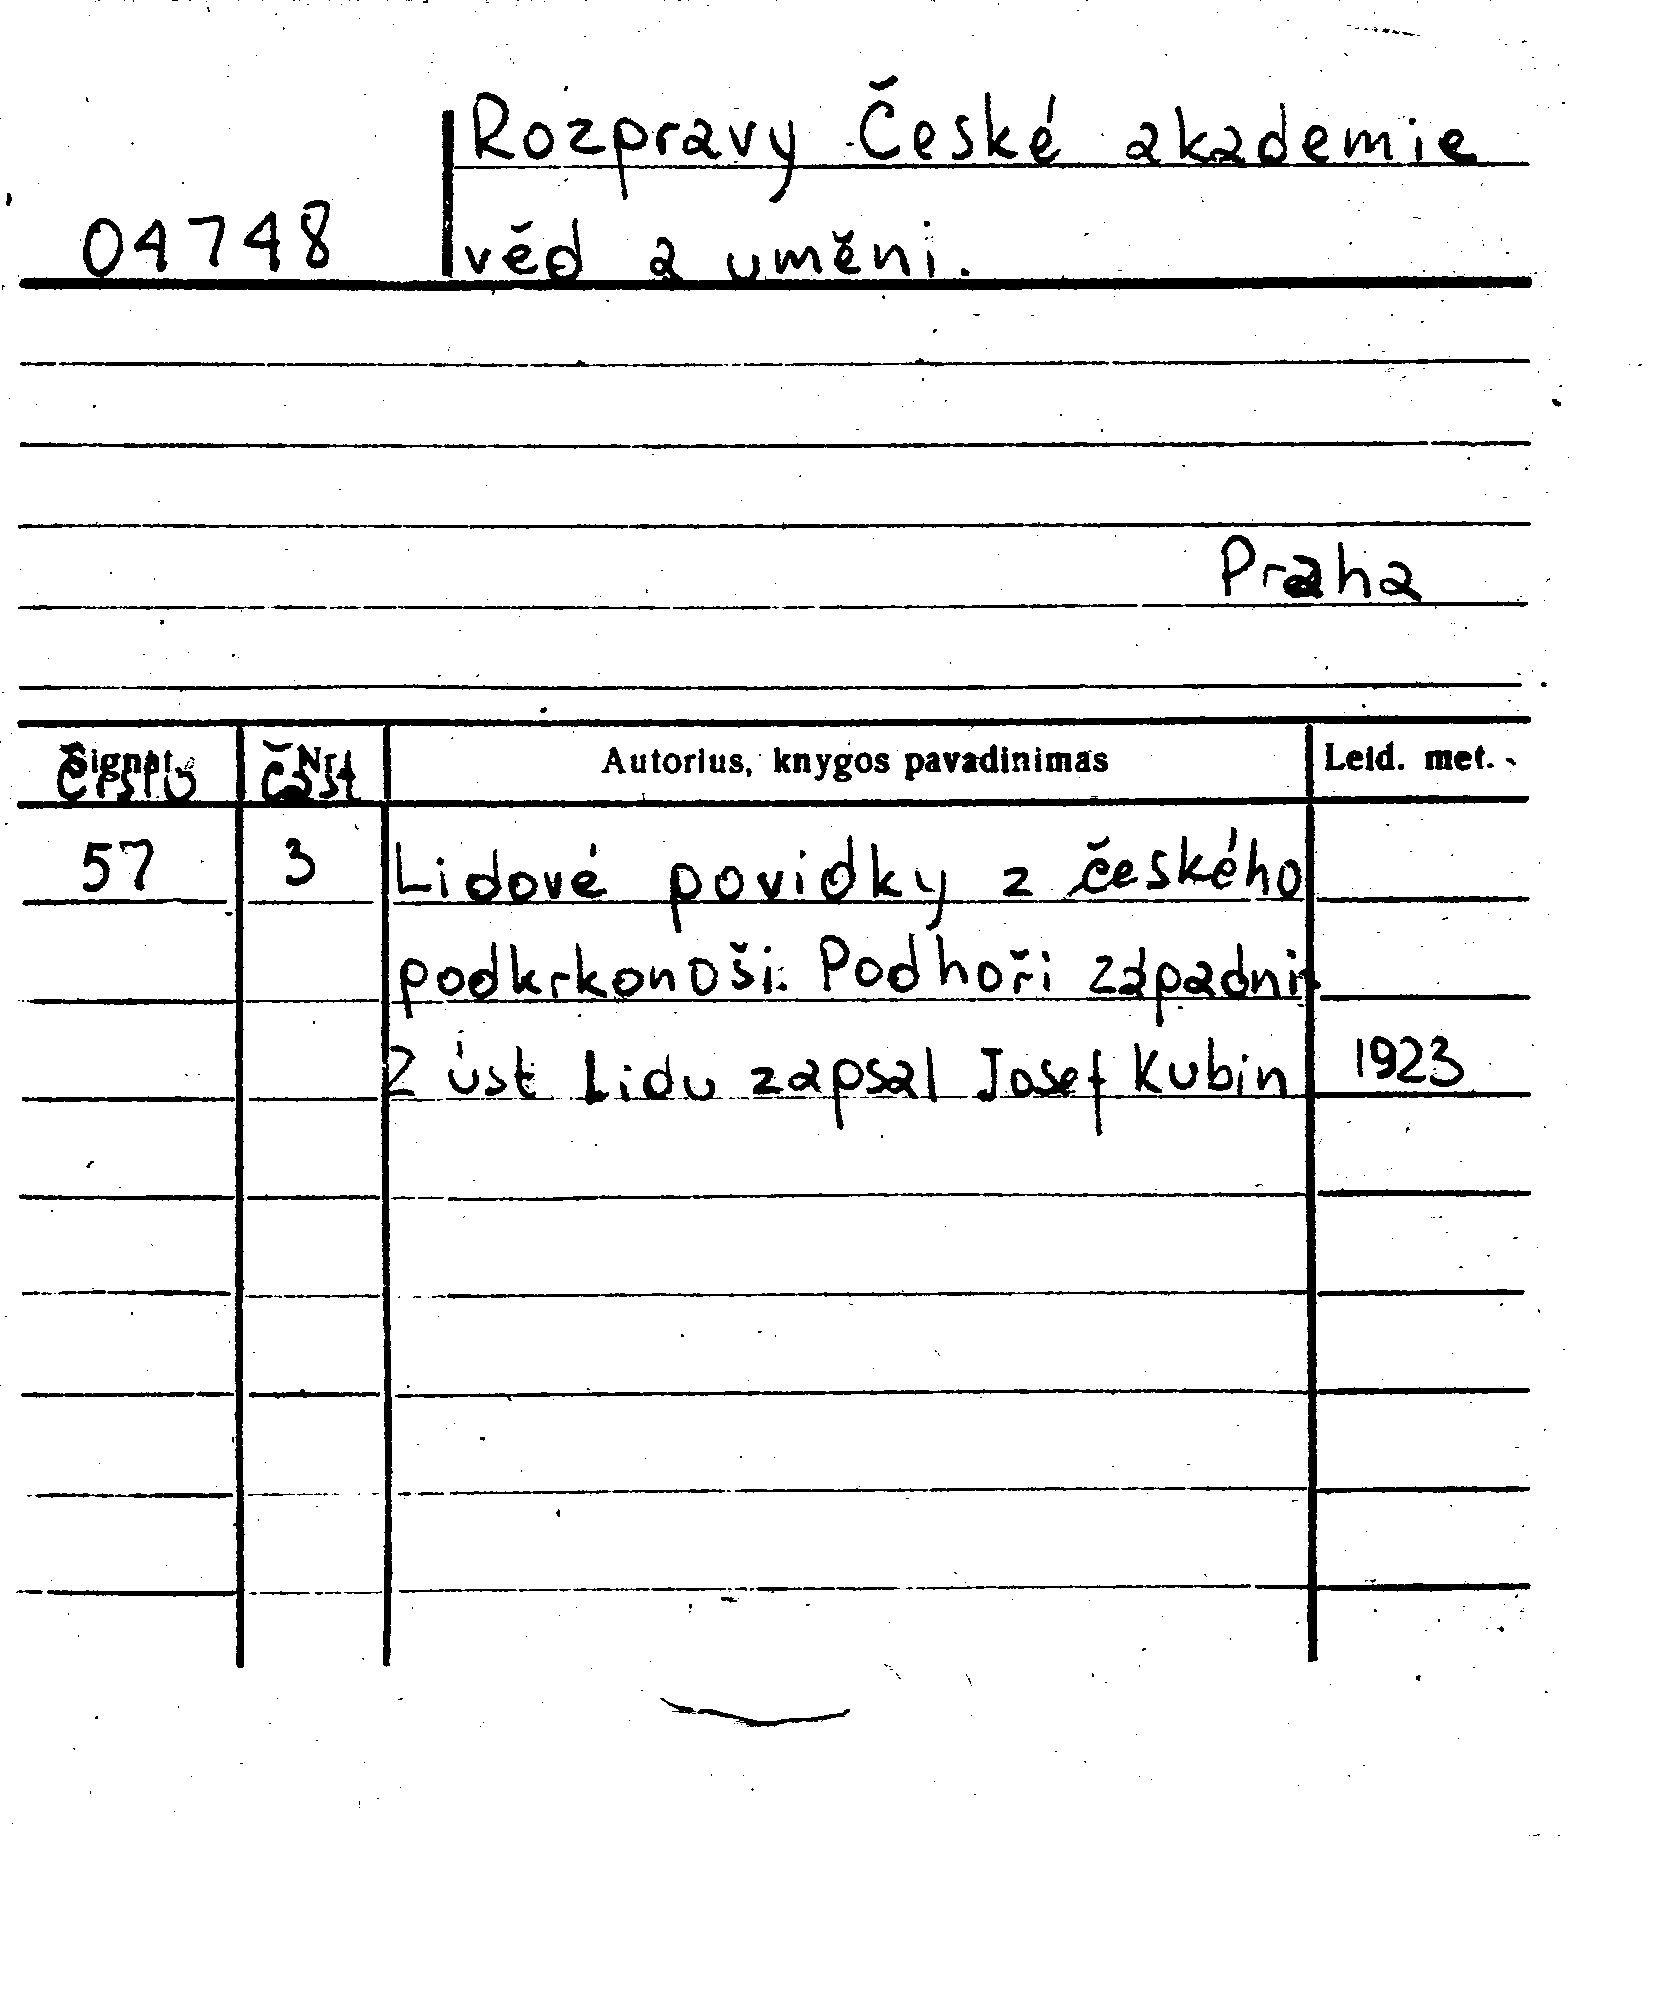 Rozpravy České akademie
04748 věd a uměni.
Praha
Signat. Nr. Autorius, knygos pavadinimas Leid. met.
Čislo Čast
57 3 Lidové povidky z českého
podkrkonoši. Podhoři západni.
Z úst Lidu zapsal Josef Kubin 1923